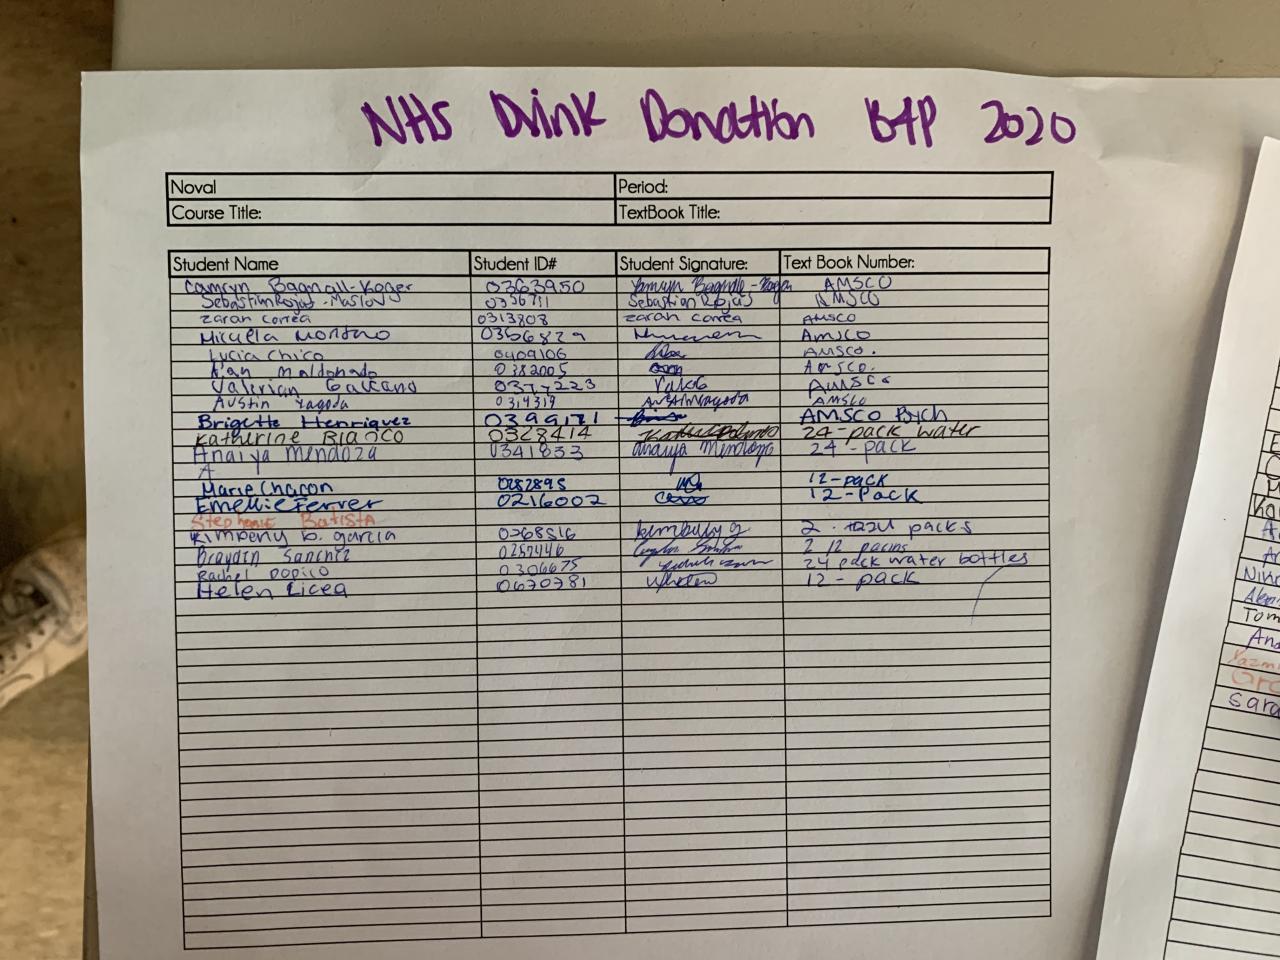 NHS Drink Donation B4P 2020
Noval Period:
Course Title: TextBook Title:
Student Name Student ID# Student Signature: Text Book Number:
Camryn Bagnall-Koger 0363950 AMSCO
Sebastian Rojas-Maslov Sebastian Rojas AMSCO
zarah correa 0313808 zarah correa AMSCO
Micaela Montano 0356829 AMSCO
Lucia Chico 0409106 AMSCO.
Alan Maldonado 0382005 AMSCO.
Valerian Galeano 0377223 AMSCO
Austin Yagoda 0314319 Austin Yagoda AMSCO
Brigette Henriquez 0399171 AMSCO Psych
Katherine Blanco 0328414 24-pack water
Anaiya Mendoza 0341853 Anaiya Mendoza 24-pack
A
Marie Chacon 0282895 12-pack
Emellie Ferrer 0216002 12-Pack
Stephanie Batista
Kimberly D. garcia 0268516 kimberly g 2 packs
Brayden Sanchez 0257446 2 12 packs
Rachel 0306675 24 pack water bottles
Helen Licea 0670781 12-pack